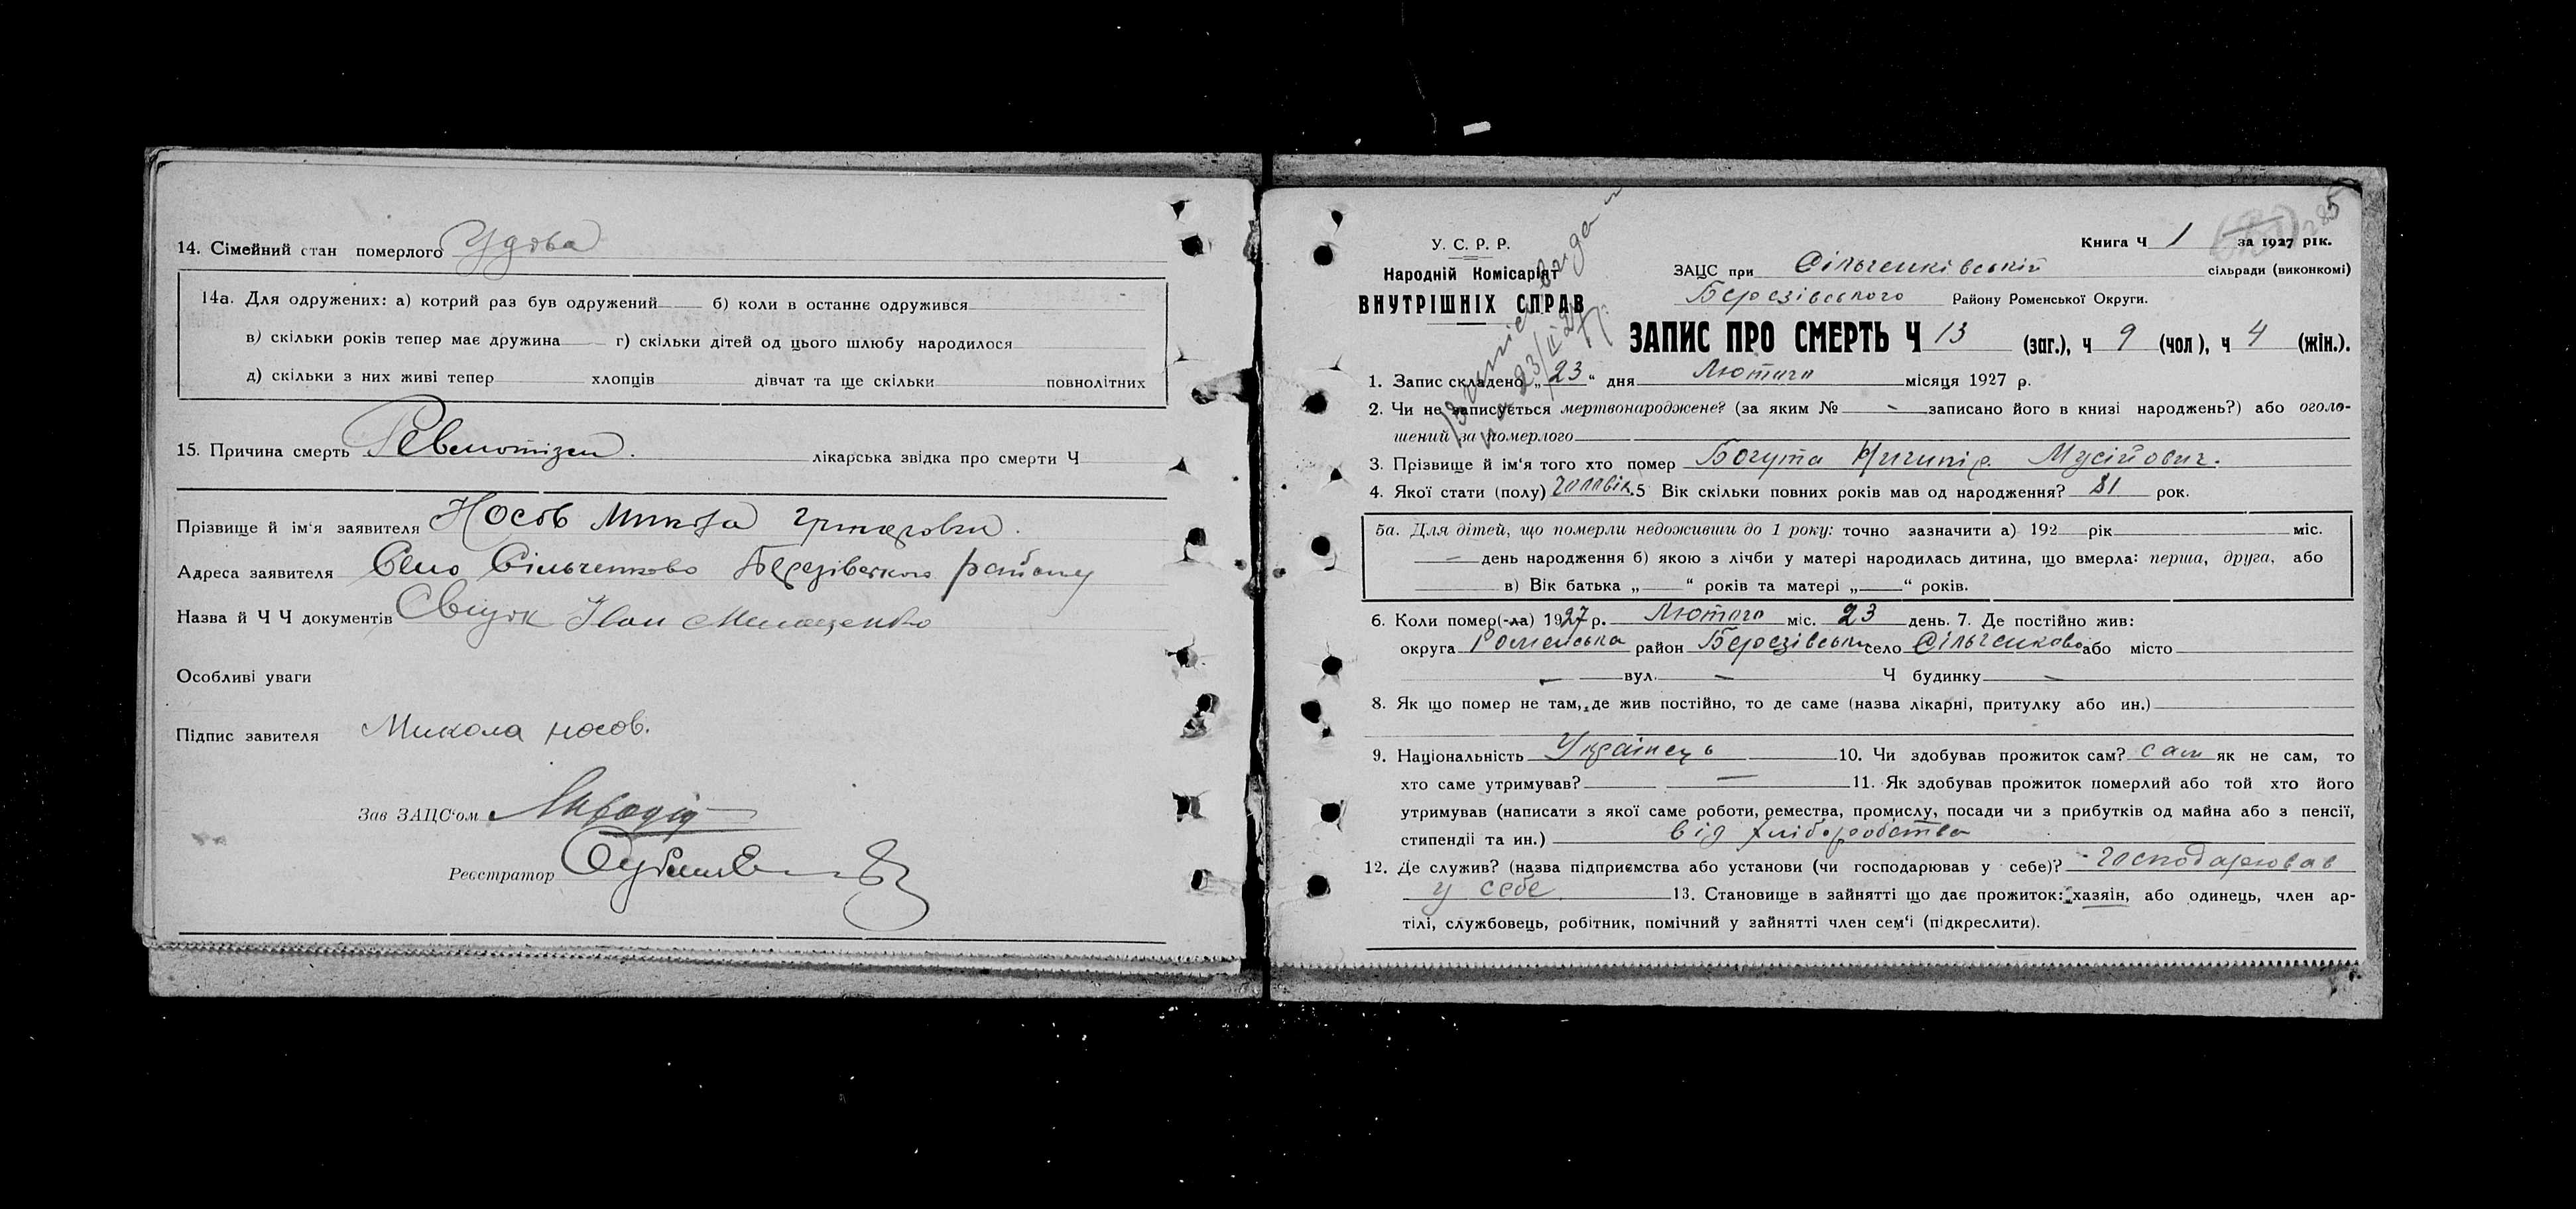 14. Сімейний стан померлого Удова
14а. Для одружених: а) котрий раз був одружений б) коли в останнє одружився
в) скільки років тепер має дружина г) скільки дітей од цього шлюбу народилося
д) скільки з них живі тепер хлопців дівчат та ще скільки повнолітних
15. Причина смерть Ревмотізм. лікарська звідка про смерти Ч
Прізвище й ім'я заявителя Носов Микола
Адреса заявителя Село Сільченково Березівського району
Назва й Ч Ч документів Свідок Іван
Особливі уваги
Підпис завителя Микола носов.
Зав ЗАЦС'ом
Реєстратор
285
У. С. Р. Р.
Народній Комісаріят
ВНУТРІШНІХ СПРАВ
Книга Ч 1 за 1927 рік.
ЗАЦС при Сільченківській сільради (виконкомі)
Березівського Району Роменської Округи.
ЗАПИС ПРО СМЕРТЬ Ч 13 (заг.), ч 9 (чол), ч 4 (жін.).
1. Запис складено „23“ дня Лютого місяця 1927 р.
2. Чи не записується мертвонароджене? (за яким № - записано його в книзі народжень?) або оголо-
шений за померлого
3. Прізвище й ім'я того хто помер Богута Ничипір Мусійович.
4. Якої стати (полу) чоловік. 5 Вік скільки повних років мав од народження? 81 рок.
5а. Для дітей, що померли недоживши до 1 року: точно зазначити а) 192 рік міс.
— день народження б) якою з лічби у матері народилась дитина, що вмерла: перша, друга, або
в) Вік батька „ “ років та матері „ “ років.
6. Коли помер(-ла) 1927 р. Лютого міс. 23 день. 7. Де постійно жив:
округа Роменська район Березівськи село Сільченково або місто
— вул. — Ч будинку —
8. Як що помер не там, де жив постійно, то де саме (назва лікарні, притулку або ин.)
9. Національність Українець 10. Чи здобував прожиток сам? сам як не сам, то
хто саме утримував? — 11. Як здобував прожиток померлий або той хто його
утримував (написати з якої саме роботи, ремества, промислу, посади чи з прибутків од майна або з пенсії,
стипендії та ин.) від хліборобства
12. Де служив? (назва підприємства або установи (чи господарював у себе)? господарював
у себе 13. Становище в зайнятті що дає прожиток: хазяїн, або одинець, член ар-
тілі, службовець, робітник, помічний у зайнятті член сем'ї (підкреслити).